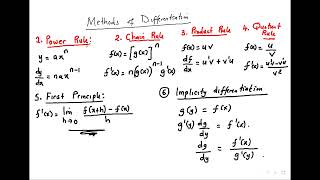 Methods of Differentiation
1. Power Rule:
y = ax^n
dy/dx = nax^(n-1)
2. Chain Rule
f(x) = [g(x)]^n
f'(x) = n(g(x))^(n-1) g'(x)
3. Product Rule
f(x) = uv
df/dx = u'v + v'u
4. Quotient Rule
f(x) = u/v
f'(x) = (u'v - v'u)/v²
5. First Principle:
f'(x) = lim h→0 (f(x+h) - f(x))/h
6 Implicity differentiation
g(y) = f(x)
g'(y) dy/dx = f'(x).
dy/dx = f'(x)/g'(y)